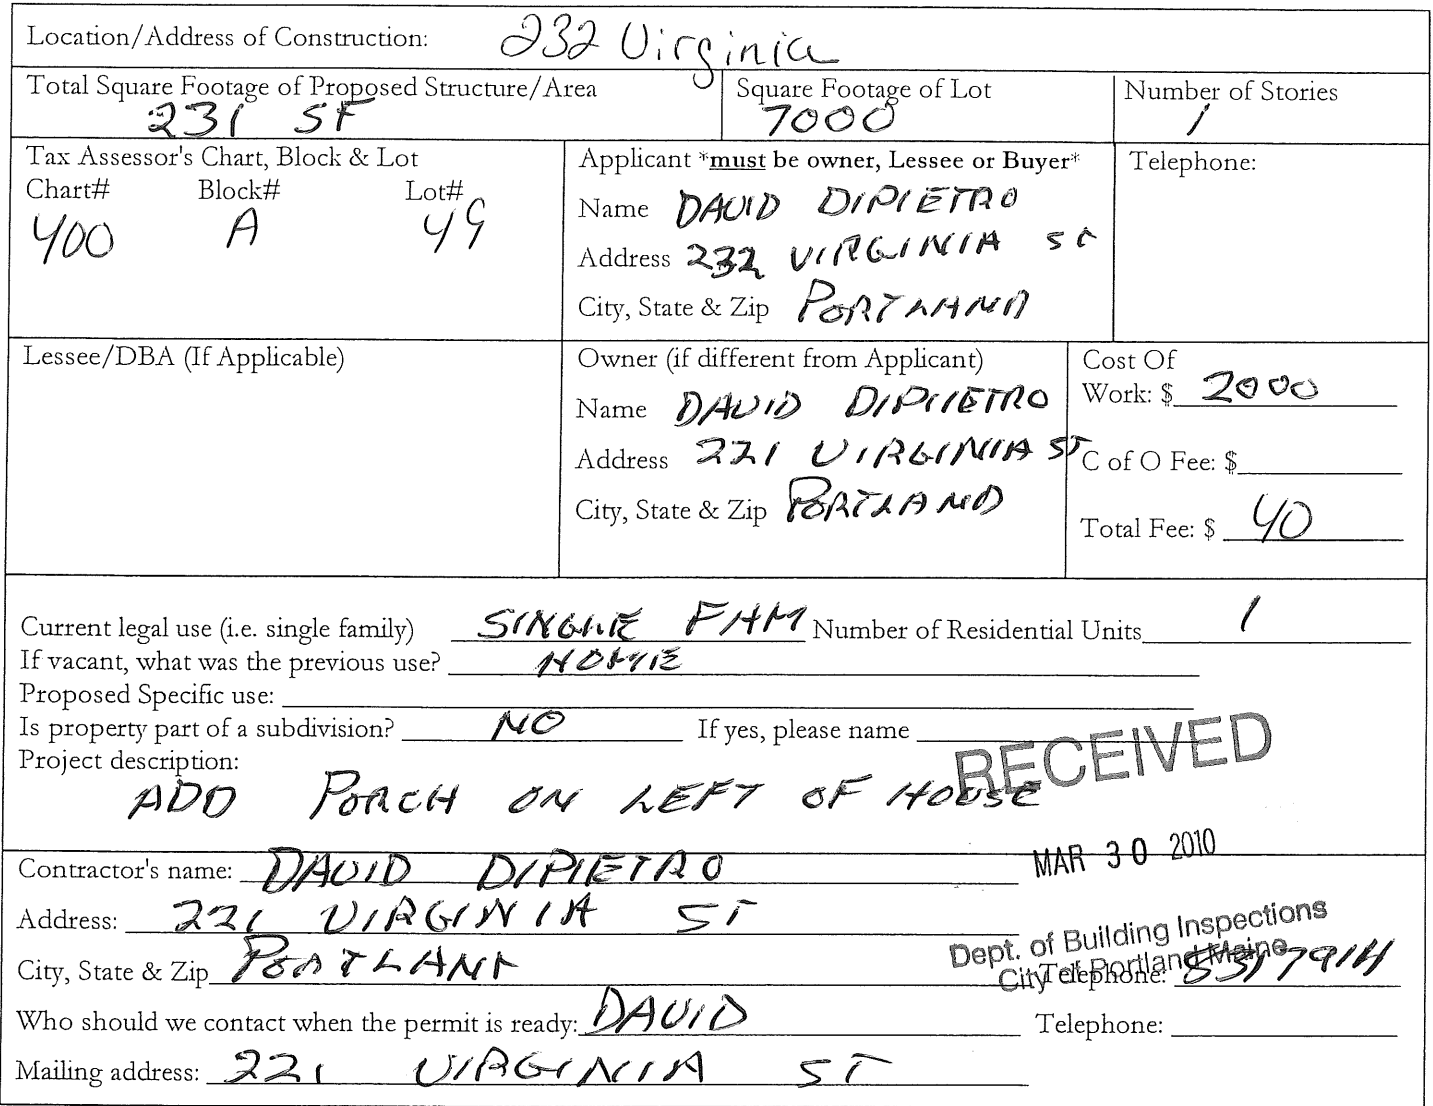 Location/Address of Construction: 232 Virginia
Total Square Footage of Proposed Structure/Area
231 SF
Square Footage of Lot
7000
Number of Stories
1
Tax Assessor's Chart, Block & Lot
Chart# Block# Lot#
400 A 49
Applicant *must be owner, Lessee or Buyer*
Name DAVID DIPIETRO
Address 232 VIRGINIA ST
City, State & Zip PORTLAND
Telephone:
Lessee/DBA (If Applicable)
Owner (if different from Applicant)
Name DAVID DIPIIETRO
Address 221 VIRGINIA ST
City, State & Zip PORTLAND
Cost Of
Work: $ 2000
C of O Fee: $
Total Fee: $ 40
Current legal use (i.e. single family) SINGLE FAM Number of Residential Units 1
If vacant, what was the previous use? HOME
Proposed Specific use:
Is property part of a subdivision? NO If yes, please name
Project description:
ADD PORCH ON LEFT OF HOUSE
RECEIVED
MAR 30 2010
Dept. of Building Inspections
City of Portland Maine
Contractor's name: DAVID DIPIETRO
Address: 221 VIRGINIA ST
City, State & Zip PORTLAND Telephone:
Who should we contact when the permit is ready: DAVID Telephone:
Mailing address: 221 VIRGINIA ST